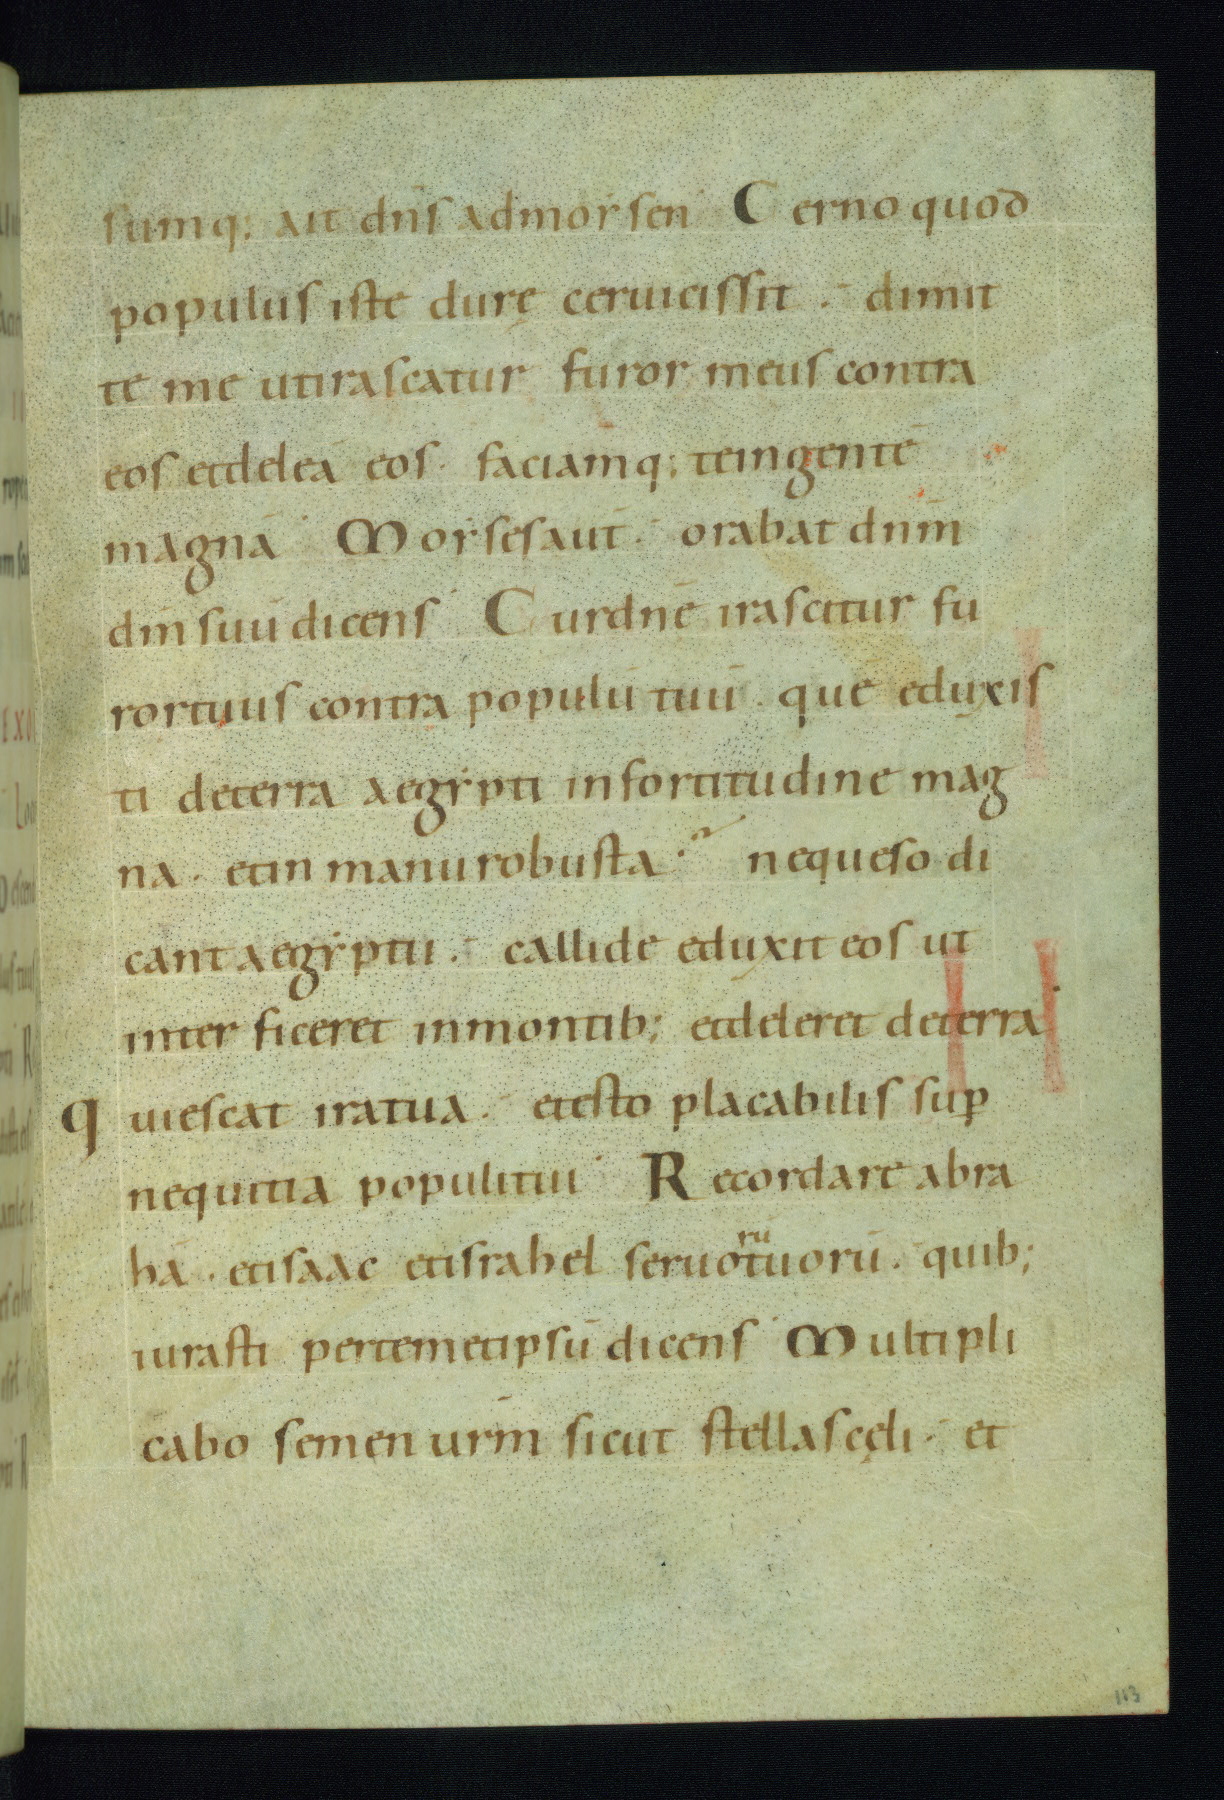 sumq; ait dn̄s admoẏsen Cerno quod
populus iste durę ceruicissit. dimit
te me utirascatur furor meus contra
eos etdeleā eos. faciamq; teingentē
magnā Moẏsesaut̄. orabat dn̄m
dm̄ suū dicens Curdnē irascitur fu
rortuus contra populū tuū. quē eduxis
ti deterra aegẏpti infortitudine mag
na. etin manurobusta. nequeso di
cant aegẏptii. callide eduxit eos ut
interficeret inmontib; etdeleret deterra
quiescat iratua. etesto placabilis sup̄
nequitia populitui Recordare abra
hā. etisaac etisrahel seruorūtuorū. quib;
iurasti pertemetipsū dicens Multipli
cabo semen urm̄ sicut stellascęli. et
113